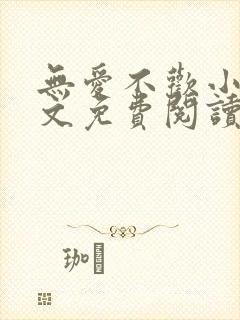 無愛不歡小
文免費閱讀
珈